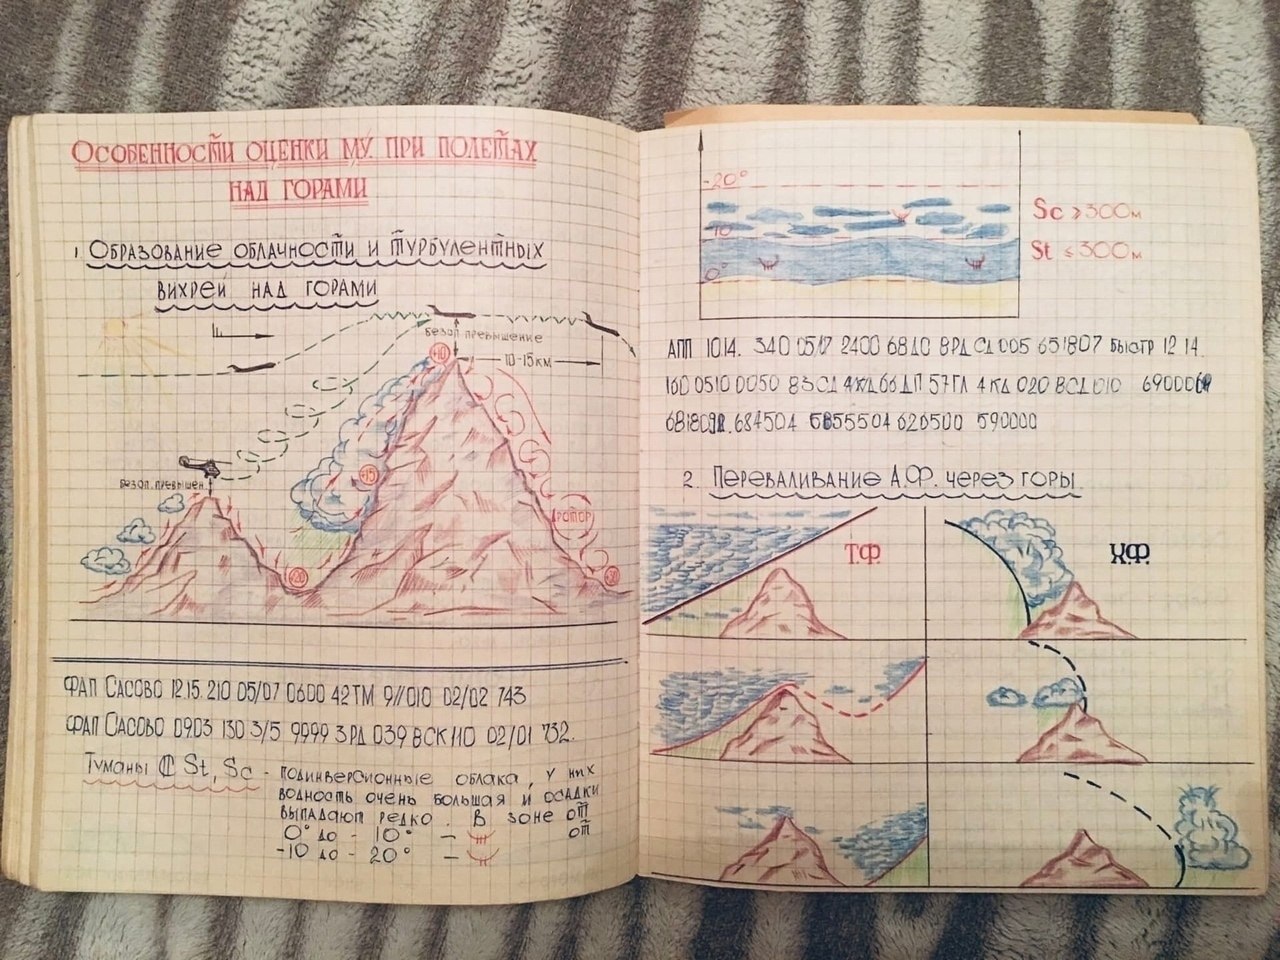 Особенности оценки МУ при полетах
над горами
1. Образование облачности и турбулентных
вихрей над горами
безоп. превышение
+10
10-15км
+15
безоп. превышен.
РОТОР
+20
+30
ФАП Сасово 12.15. 210 05/07 0600 42ТМ 9//010 02/02 743
ФАП Сасово 09.03 130 3/5 9999 3РД 039 8СК110 02/01 732.
Туманы St, Sc - подинверсионные облака, у них
водность очень большая и осадки
выпадают редко. В зоне от
0° до -10° - от
-10 до -20° -
-20°
-10°
0°
Sc ≥300м
St ≤300м
АПП 1014. 340 05/7 2400 68Д0 8РД СД005 651807 быстр 12 14.
160 0510 0050 83СД 4КД66 ДП 57ГЛ 4КД 020 8СД010
684504 620500 590000
2. Переваливание А.Ф. через горы.
Т.Ф.
Х.Ф.